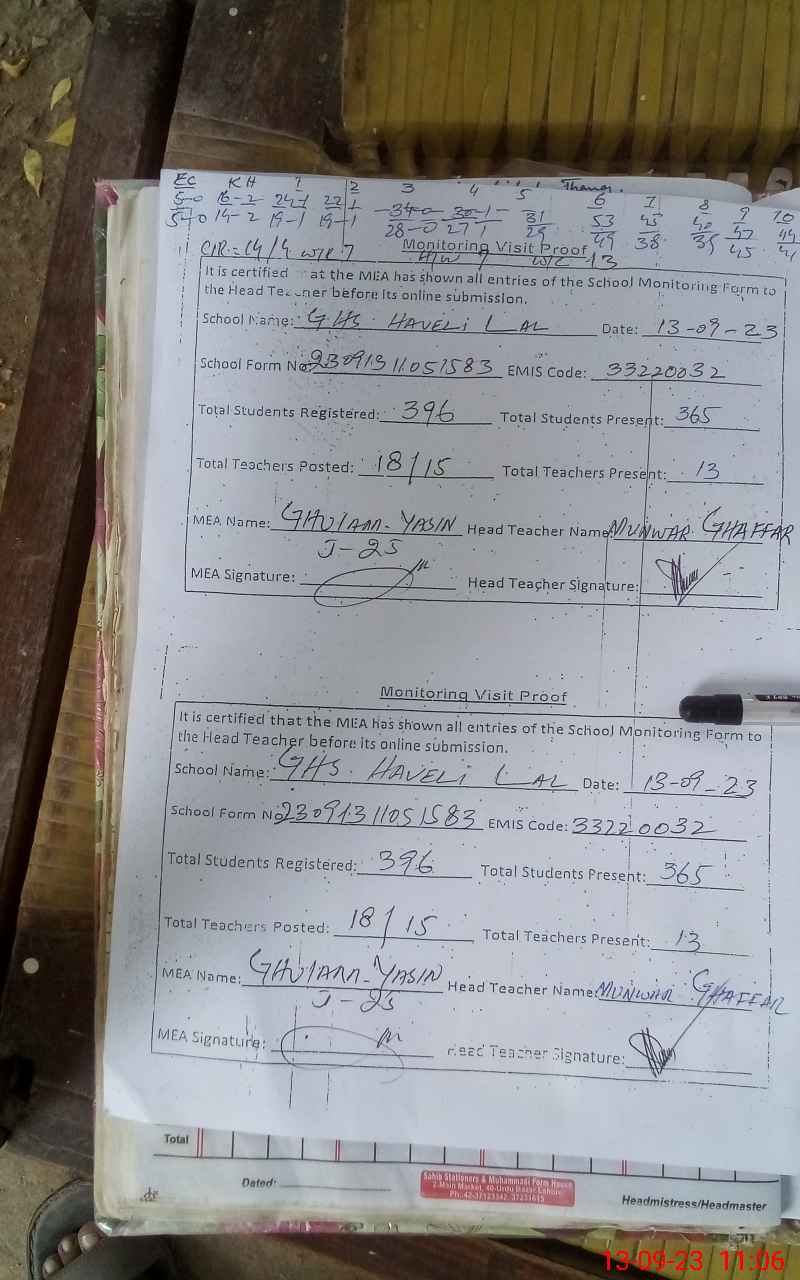 EC KH 1 2 3 4 5 6 7 8 9 10
5-0 16-2 24-1 22-1 34-0 30-1 31 53 45 40 47 44
5-0 14-2 19-1 19-1 28-0 27 1 29 49 38 35 45
CIR = 14/4 W/R 7 Monitoring Visit Proof
H/W 9 W/C 13
It is certified at the MEA has shown all entries of the School Monitoring Form to
the Head Teacher before its online submission.
School Name: GHS. HAVELI LAL Date: 13-09-23
School Form No: 23091311051583 EMIS Code: 33220032
Total Students Registered: 396 Total Students Present: 365
Total Teachers Posted: 18/15 Total Teachers Present: 13
MEA Name: GHULAM-YASIN Head Teacher Name: MUNWAR GHAFFAR
J-25
MEA Signature: Head Teacher Signature:
Monitoring Visit Proof
It is certified that the MEA has shown all entries of the School Monitoring Form to
the Head Teacher before its online submission.
School Name: GHS. HAVELI LAL Date: 13-09-23
School Form No 23091311051583 EMIS Code: 33220032
Total Students Registered: 396 Total Students Present: 365
Total Teachers Posted: 18/15 Total Teachers Present: 13
MEA Name: GHULAM-YASIN Head Teacher Name: MUNWAR GHAFFAR
J-25
MEA Signature: Head Teacher Signature:
Total
Dated:
Sahib Stationers & Muhammadi Form House
2-Main Market, 40-Urdu Bazar Lahore.
Ph: 42-37123342, 37231615
Headmistress/Headmaster
13-09-23 11:06